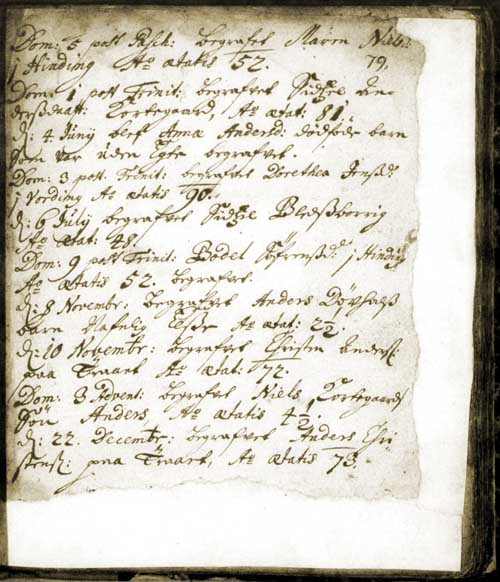 Dom: 5 post Pasch: begrafvet Maren Niels:
79.
j Hinding Aō ætatis 52.
Dom: 1 post Trinit: begrafvet Sidzel An-
dersdaatt: Kortegaard, Aō ætat: 81
d: 4 Juny blef Anna Andersd: dödföde barn
som var uden Egte begrafvet.
Dom: 3 post Trinit: begrafvet Dorethea Jensd:
j Nording Aō ætatis 90.
d: 6 July begrafvet Sidzel Blæsborrig
Aō ætat: 48.
Dom: 9 post Trinit: Bodel Sörrensd: j Hinding
Aō ætatis 52. begrafvet.
d: 8 Novembr: begrafvet Anders
barn Aō ætat: 2½.
d: 10 Novembr: begrafvet Christen Anders:
paa Traant Aō ætat: 72.
Dom: 3 Advent: begrafvet Niels Kortegaards
Sön Anders Aō ætatis 4½.
d: 22. Decembr: begrafvet Anders Chri-
stens: paa Traant, Aō ætatis 73.